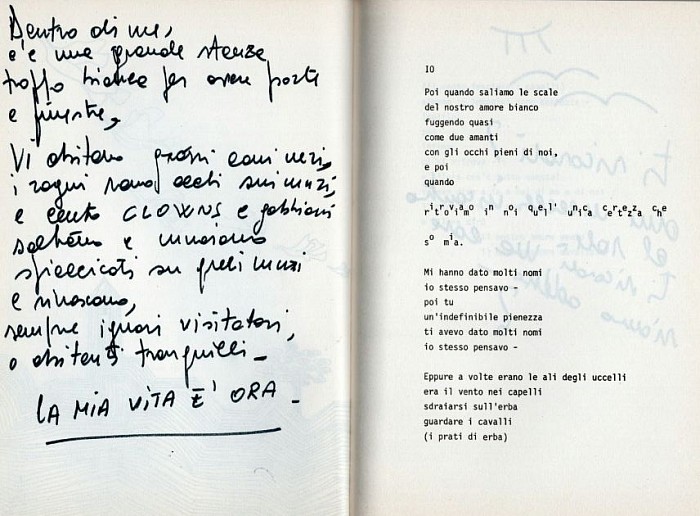 Dentro di me,
c'è una grande stanza
troppo bianca per avere porte
e finestre,
Vi abitano grossi cani neri,
i ragni sono occhi sui muri,
e cento CLOWNS e gabbiani
saltano e muoiono
spiaccicati su quei muri
e rinascono,
sempre ignari visitatori,
o abitanti tranquilli -
LA MIA VITA E' ORA -
IO
Poi quando saliamo le scale
del nostro amore bianco
fuggendo quasi
come due amanti
con gli occhi pieni di noi,
e poi
quando
ritroviamo in noi quell' unica certezza che
so mia.
Mi hanno dato molti nomi
io stesso pensavo -
poi tu
un'indefinibile pienezza
ti avevo dato molti nomi
io stesso pensavo -
Eppure a volte erano le ali degli uccelli
era il vento nei capelli
sdraiarsi sull'erba
guardare i cavalli
(i prati di erba)